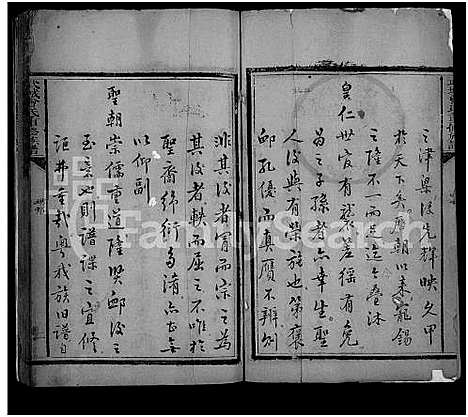 之津梁後先輝映久甲
於天下矣歷朝以来寵錫
之隆不一而足迄今叠沐
皇仁世宦有襲差徭有免
曷之子孫者亦幸生聖
人後與有榮施也第褒
邱孔優而真贋不辨例
非其後者冒而宗之為
其後者軼而屈之不唯於
聖裔綿衍多淆亦甚無
以仰副
聖朝崇儒重道隆賢邱後之
至意也則譜牒之宜修
詎弗重哉粵我族旧譜自
FamilySearch